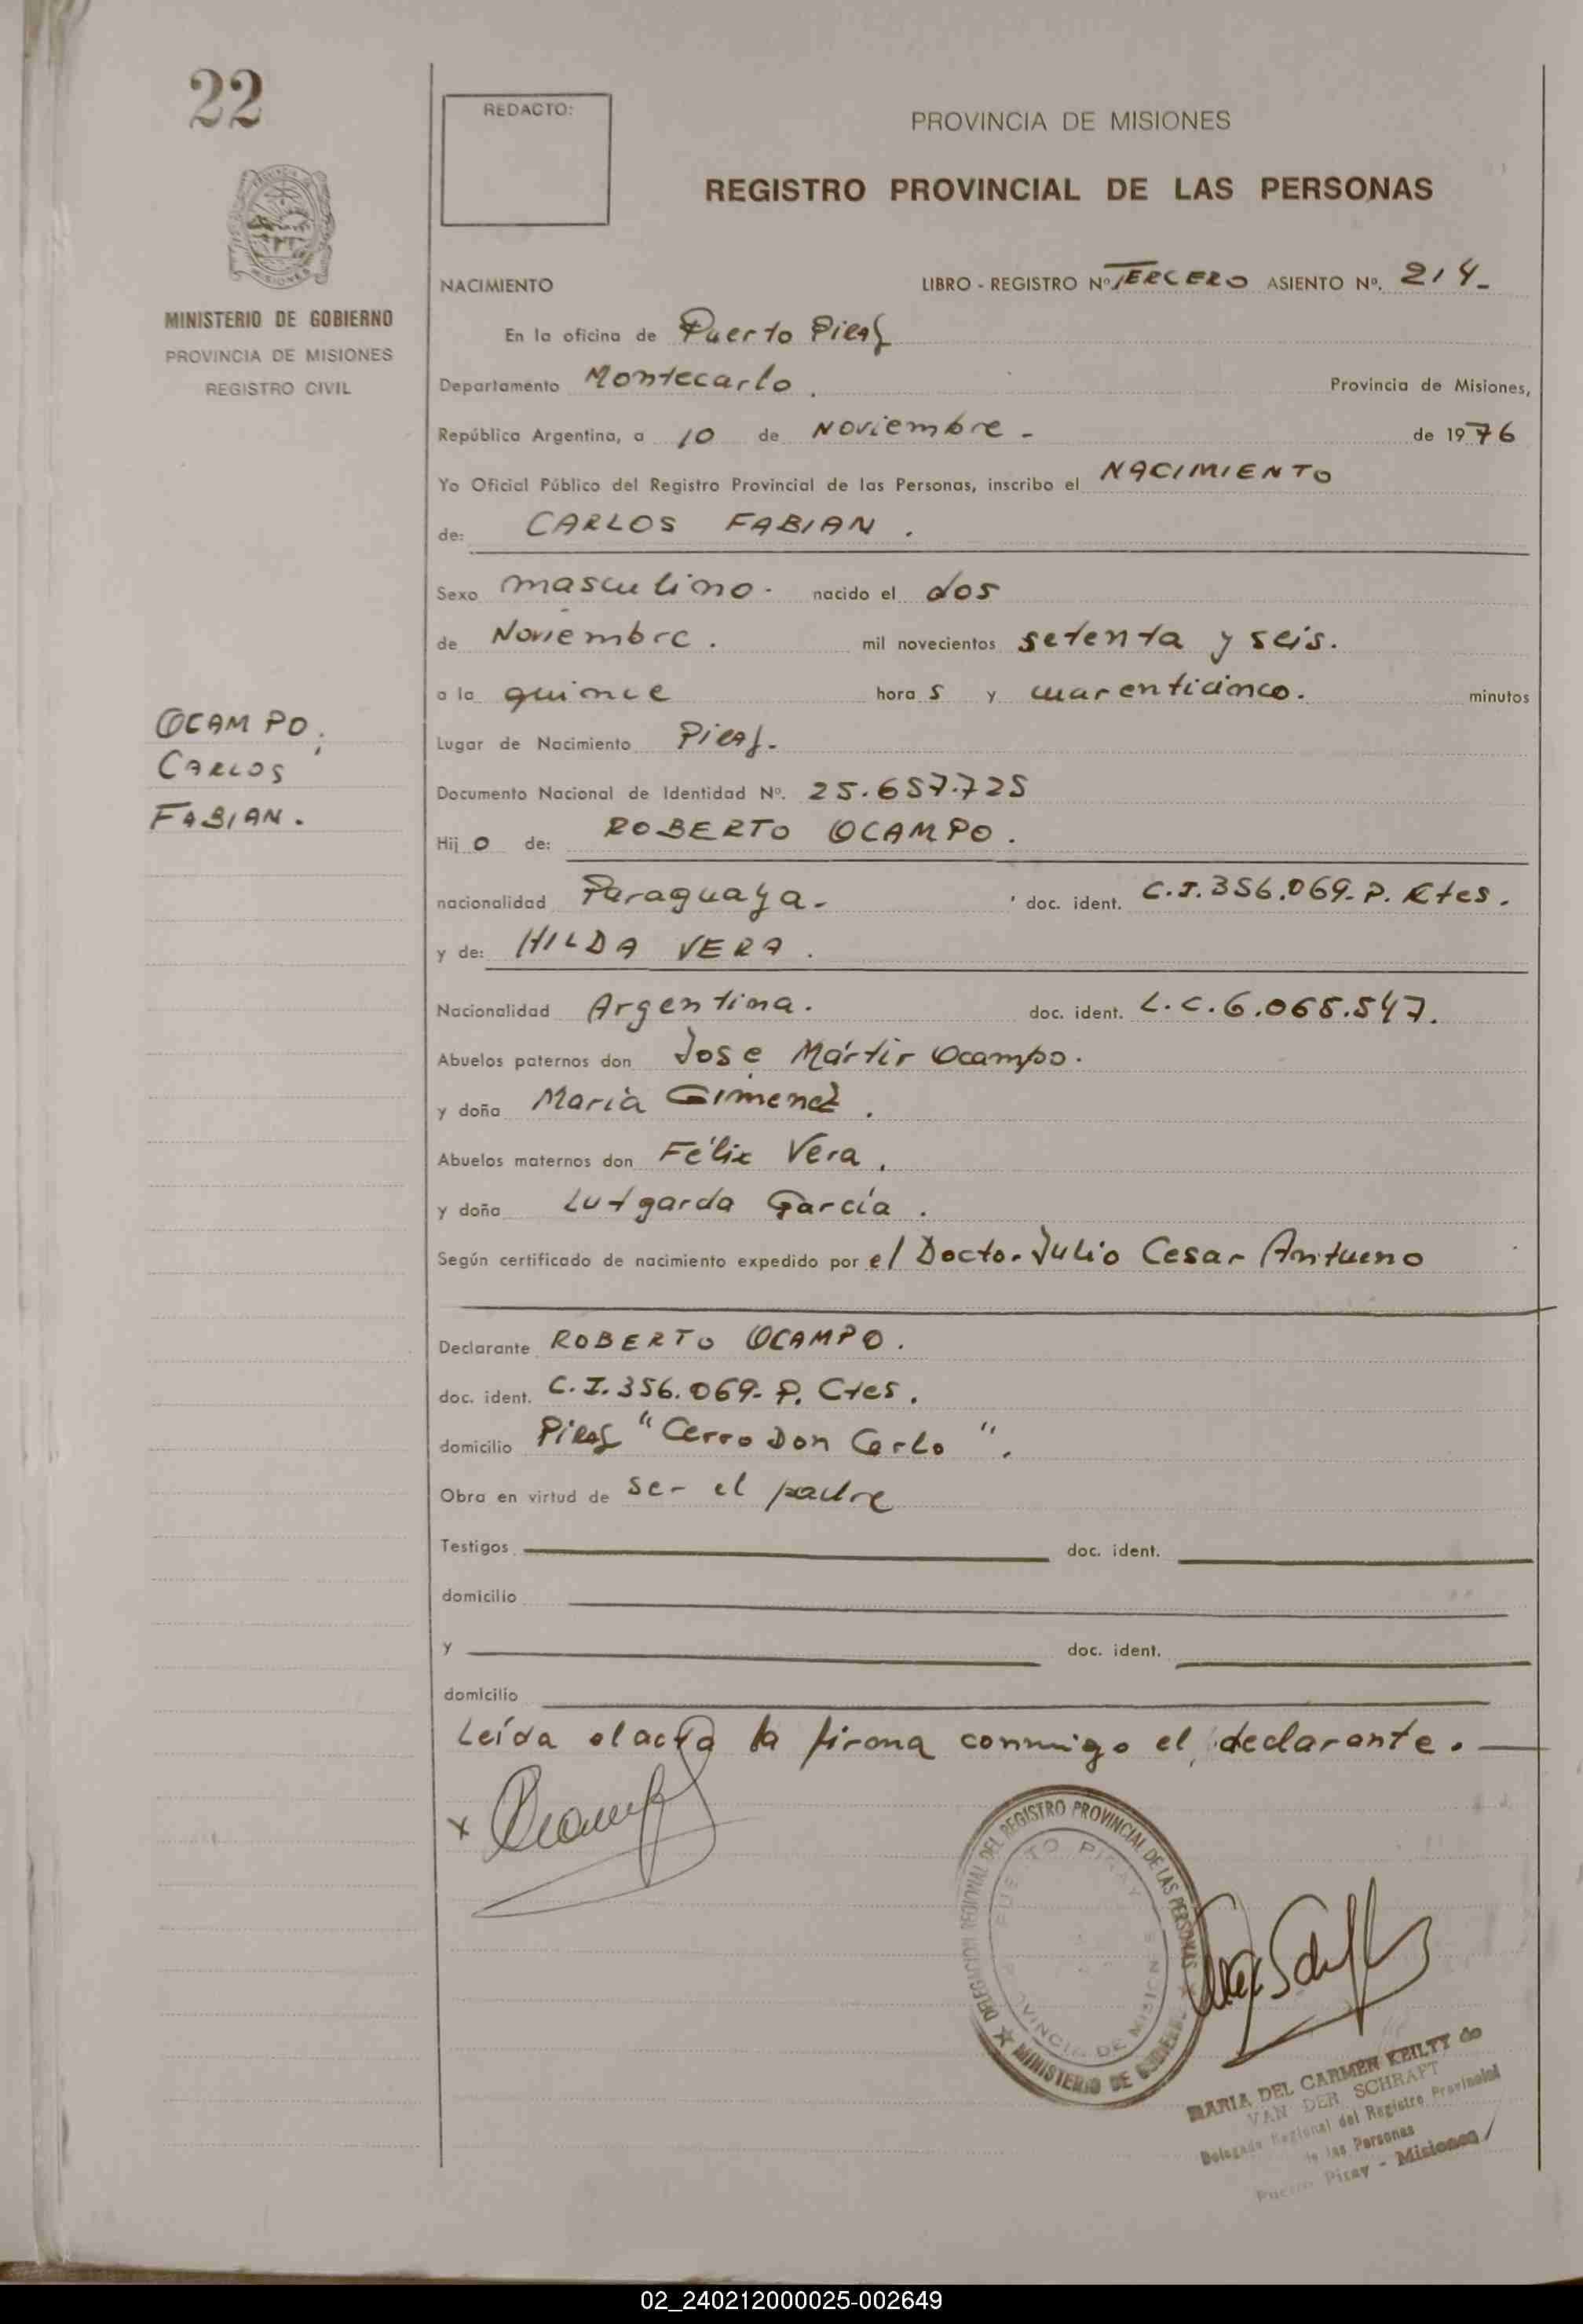 22
REDACTO:
PROVINCIA DE MISIONES
REGISTRO PROVINCIAL DE LAS PERSONAS
MINISTERIO DE GOBIERNO
PROVINCIA DE MISIONES
REGISTRO CIVIL
NACIMIENTO LIBRO - REGISTRO Nº TERCERO ASIENTO Nº. 214-
En la oficina de Puerto Piray
Departamento Montecarlo. Provincia de Misiones,
República Argentina, a 10 de Noviembre - de 1976
Yo Oficial Público del Registro Provincial de las Personas, inscribo el NACIMIENTO
de: CARLOS FABIAN.
Sexo masculino. nacido el dos
de Noviembre. mil novecientos setenta y seis.
a la quince hora s y cuarenticinco. minutos
OCAMPO,
CARLOS
FABIAN.
Lugar de Nacimiento Piray-
Documento Nacional de Identidad Nº. 25.657.725
Hij o de: ROBERTO OCAMPO.
nacionalidad Paraguaya- doc. ident. C.I. 356.069-P. Ctes.
y de: HILDA VERA.
Nacionalidad Argentina. doc. ident. L.C. 6.065.547.
Abuelos paternos don José Mártir Ocampo.
y doña María Gimenez.
Abuelos maternos don Félix Vera,
y doña Lutgarda García.
Según certificado de nacimiento expedido por el Doctor Julio Cesar Antueno
Declarante ROBERTO OCAMPO.
doc. ident. C.I. 356.069-P. Ctes.
domicilio Piray "Cerro Don Carlo".
Obra en virtud de ser el padre
Testigos doc. ident.
domicilio
y doc. ident.
domicilio
Leída el acta la firma conmigo el declarante.
x
DELEGACION REGIONAL DEL REGISTRO PROVINCIAL DE LAS PERSONAS
★ MINISTERIO DE GOBIERNO ★
PUERTO PIRAY
PROVINCIA DE MISIONES
MARIA DEL CARMEN KEILTY de
VAN DER SCHRAFT
Delegada Regional del Registro Provincial
de las Personas
Puerto Piray - Misiones
02_240212000025-002649